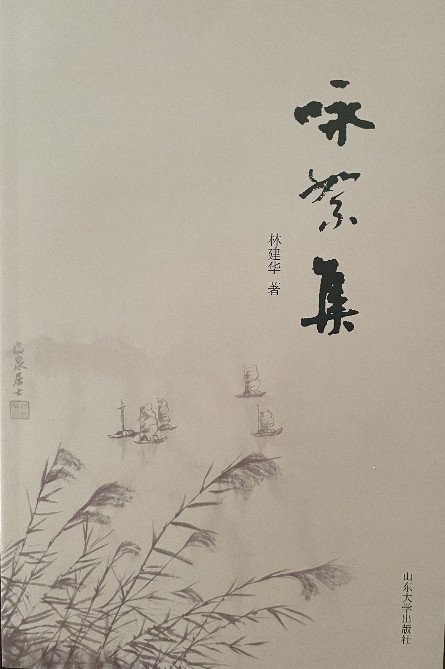 咏絮集
林建华 著
山泉居士
山东大学出版社